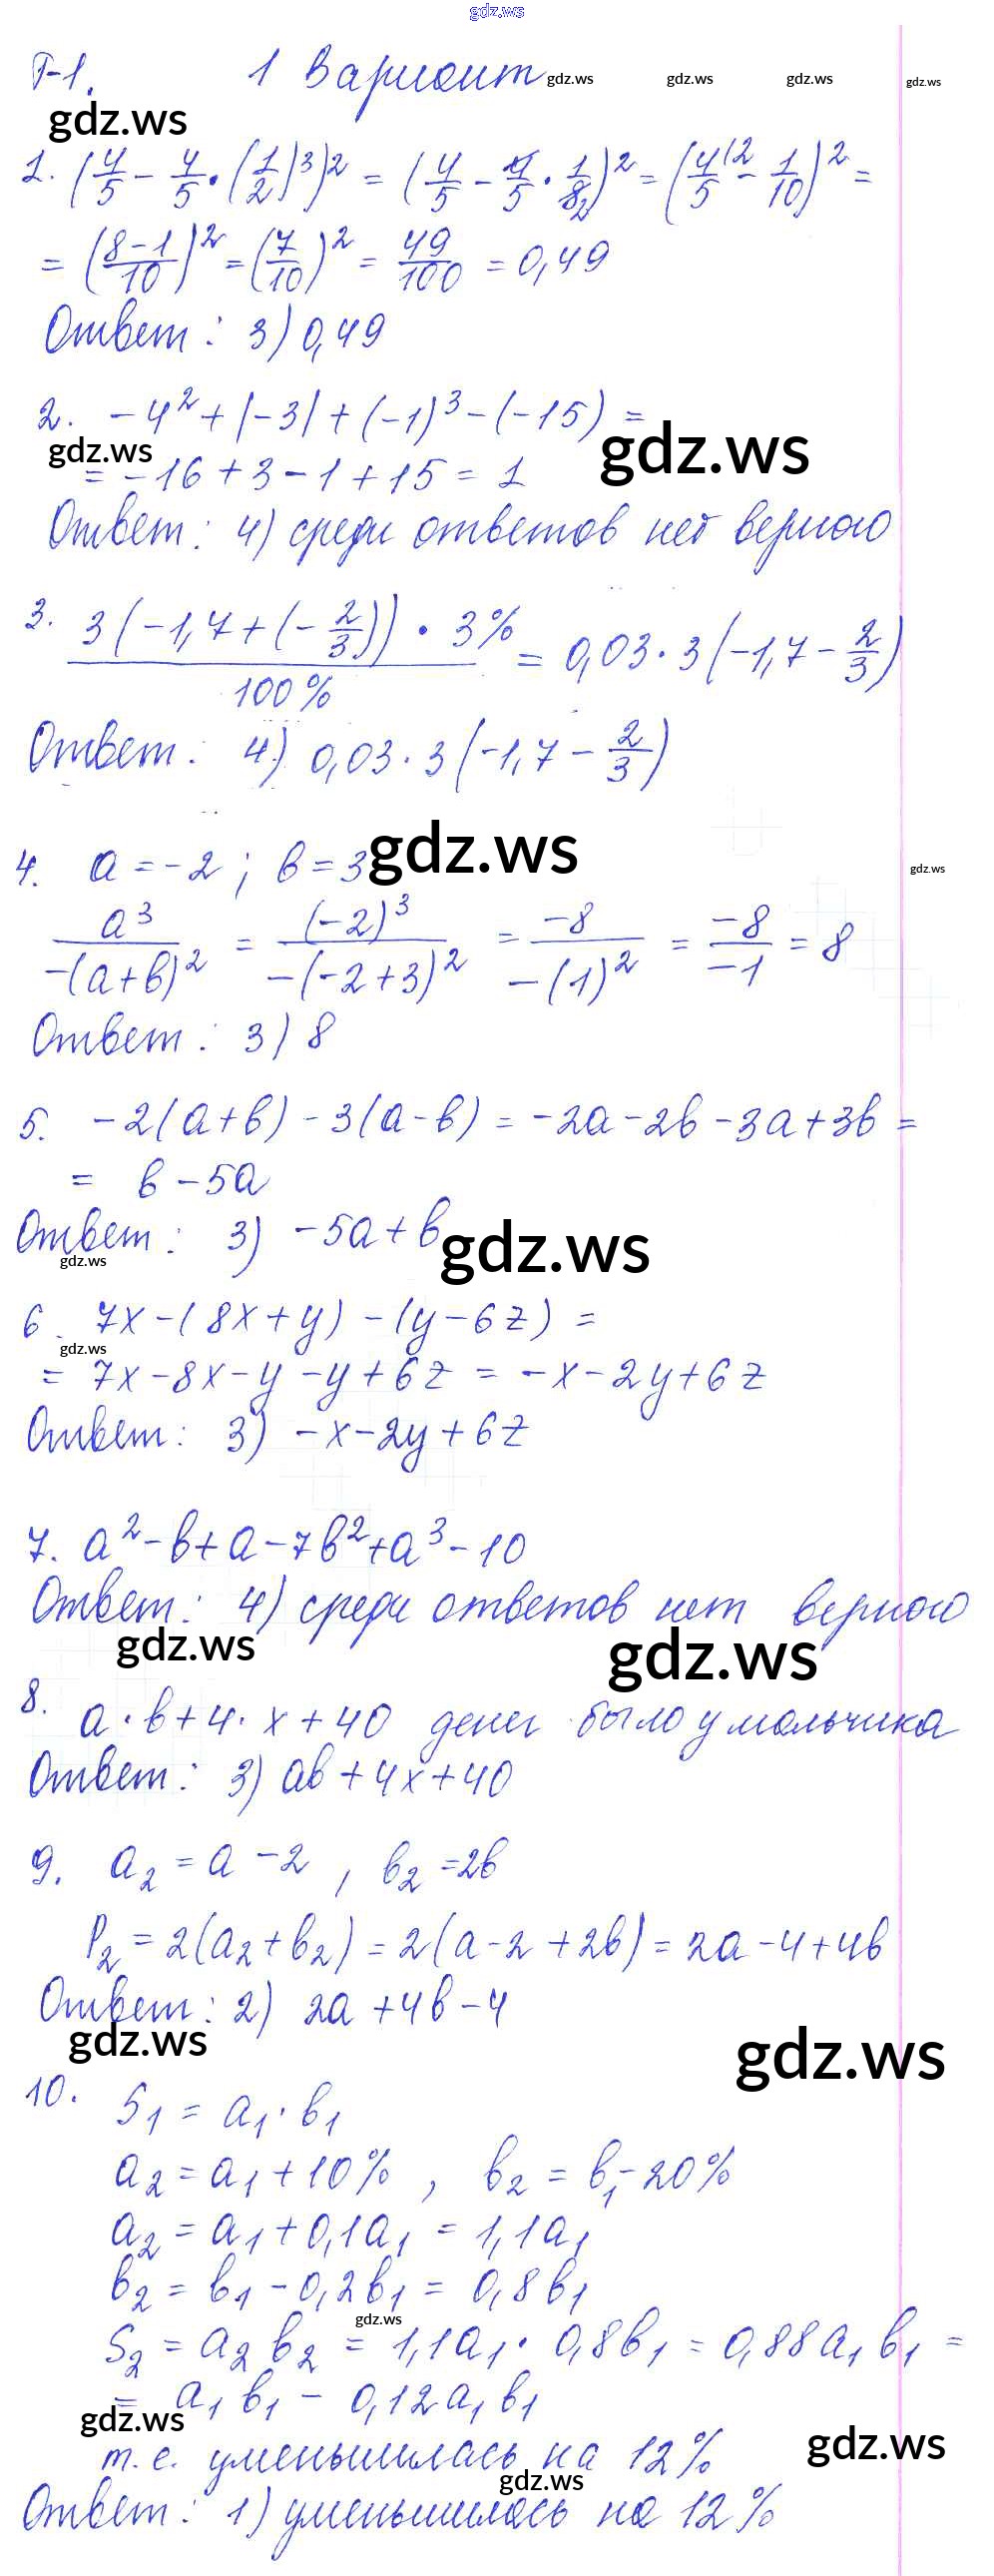 gdz.ws
Т-1. 1 Вариант gdz.ws gdz.ws gdz.ws gdz.ws
gdz.ws
1. (4/5 - 4/5 · (1/2)³)² = (4/5 - 4/5 · 1/8₂)² = (4/5 ⁽² - 1/10)² =
= ((8-1)/10)² = (7/10)² = 49/100 = 0,49
Ответ: 3) 0,49
2. -4² + |-3| + (-1)³ - (-15) =
gdz.ws gdz.ws
= -16 + 3 - 1 + 15 = 1
Ответ: 4) среди ответов нет верного
3. 3(-1,7 + (-2/3)) · 3% / 100% = 0,03 · 3(-1,7 - 2/3)
Ответ: 4) 0,03 · 3(-1,7 - 2/3)
4. a = -2; b = 3 gdz.ws gdz.ws
a³ / -(a+b)² = (-2)³ / -(-2+3)² = -8 / -(1)² = -8 / -1 = 8
Ответ: 3) 8
5. -2(a+b) - 3(a-b) = -2a - 2b - 3a + 3b =
= b - 5a
Ответ: 3) -5a + b gdz.ws
gdz.ws
6. 7x - (8x + y) - (y - 6z) =
gdz.ws
= 7x - 8x - y - y + 6z = -x - 2y + 6z
Ответ: 3) -x - 2y + 6z
7. a² - b + a - 7b² + a³ - 10
Ответ: 4) среди ответов нет верного
gdz.ws gdz.ws
8. a · b + 4 · x + 40 денег было у мальчика
Ответ: 3) ab + 4x + 40
9. a₂ = a - 2, b₂ = 2b
P₂ = 2(a₂ + b₂) = 2(a - 2 + 2b) = 2a - 4 + 4b
Ответ: 2) 2a + 4b - 4
gdz.ws gdz.ws
10. S₁ = a₁ · b₁
a₂ = a₁ + 10%, b₂ = b₁ - 20%
a₂ = a₁ + 0,1a₁ = 1,1a₁
b₂ = b₁ - 0,2b₁ = 0,8b₁
gdz.ws
S₂ = a₂ b₂ = 1,1a₁ · 0,8b₁ = 0,88a₁b₁ =
= a₁b₁ - 0,12a₁b₁
gdz.ws gdz.ws
т.е. уменьшилась на 12%
gdz.ws
Ответ: 1) уменьшилась на 12%